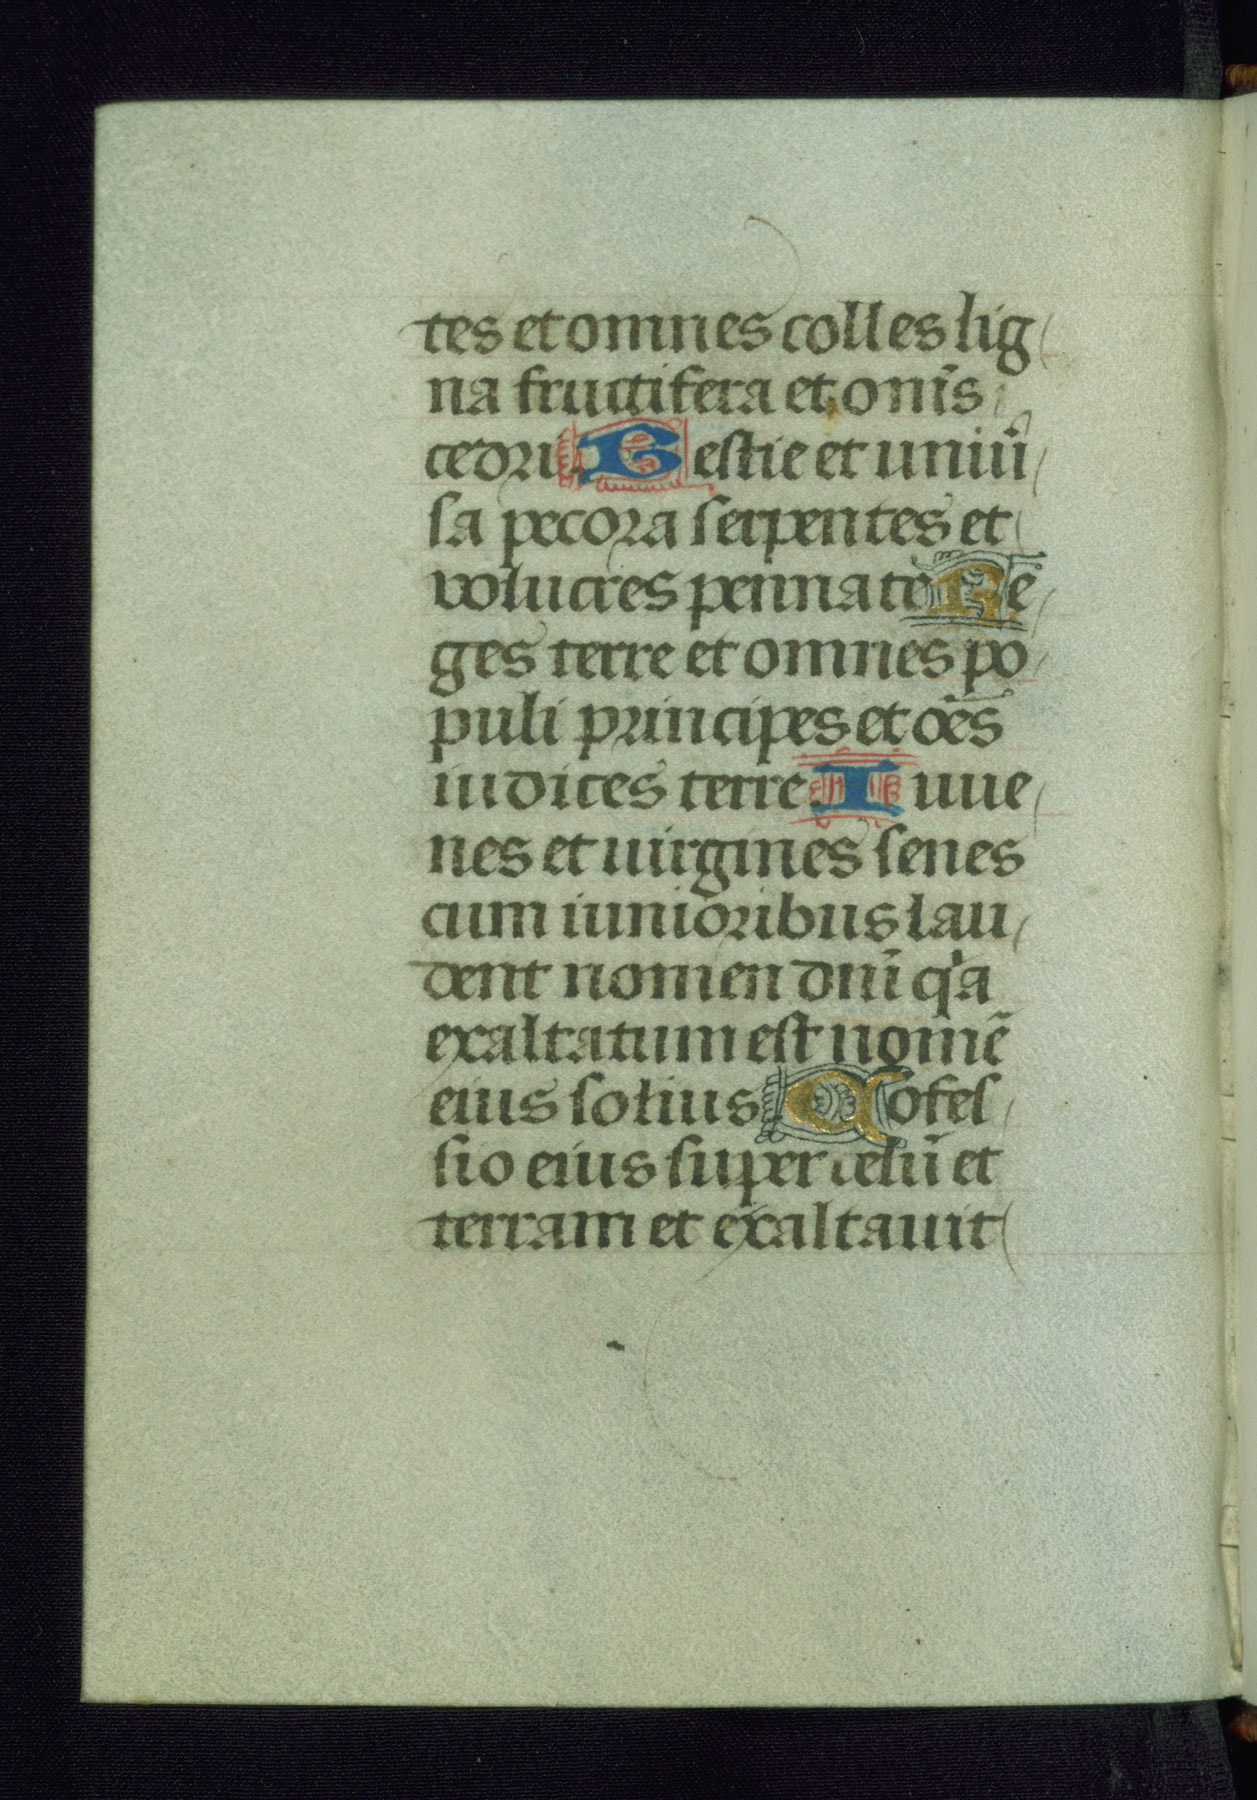 tes et omnes colles lig
na fructifera et om̄s
cedri. Bestie et uniū
sa pecora serpentes et
volucres pennate Re
ges terre et omnes po
puli principes et oēs
iudices terre. Iuue
nes et uirgines senes
cum iunioribus lau
dent nomen dnī qⁱa
exaltatum est nomē
eius solius. Cōfes
sio eius super celū et
terram et exaltauit